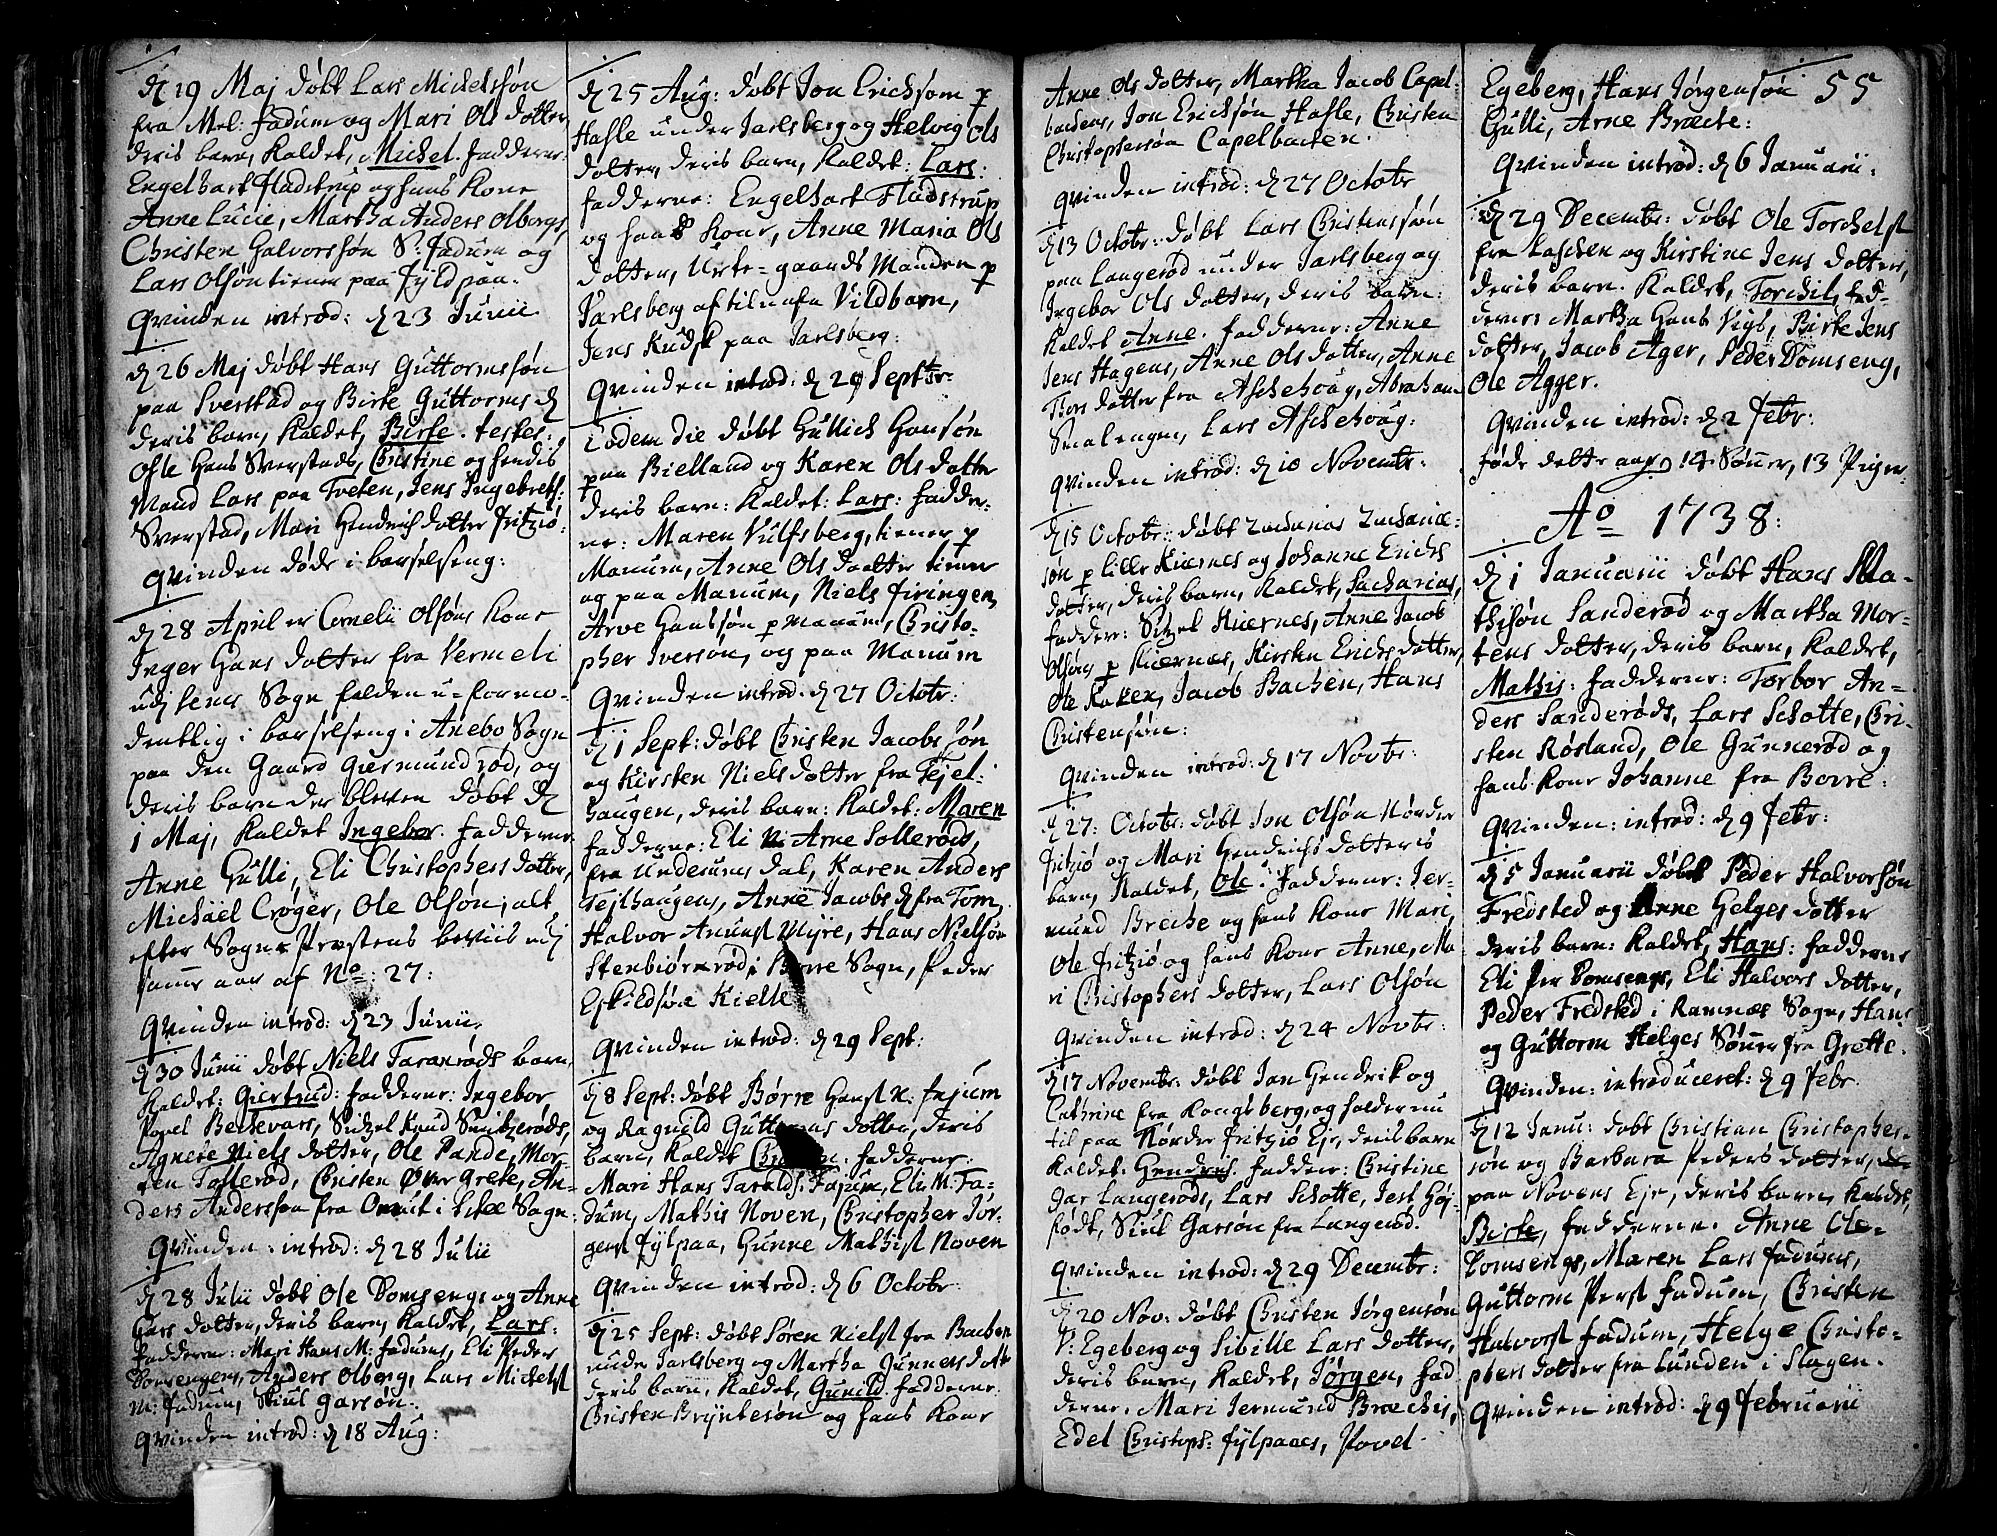 d 19 Maj døbt Lars Michelssøn
fra Mel: Fadum og Mari Ols dotter,
deris barn, kaldet, Michel. Fadderne:
Engelhart Fladstrup og hans kone
Anne Lucie, Martha Anders Olbergs,
Christen Halvorssøn S: Fadum og
Lars Olsøn tiener paa Fÿldpaa.
Qvinden introd: d 23 Junii
d 26 Maj døbt Hans Guttormssøn
paa Sverstad og Birte Guttorms d
deris barn, kaldet, Birte. testes:
Hans Sverstads, Christine og hendis
Mand Lars paa Tveten, Jens Ingebrets:
Sverstad, Mari Hendrichsdotter Fritziö:
Qvinden døde i barselseng:
d 28 April er Cornelii Olsøns kone
Inger Hans dotter fra Vermeli
udj Sems Sogn falden u-formo-
dentlig i barselseng i Anebo Sogn
paa den Gaard Giermundrød, og
deris barn der bleven døbt d
1 Maj, kaldet Ingebor. Fadderne
Anne Gulli, Eli Christophers dotter,
Michäel Crøger, Ole Olsøn, alt
efter Sogne Præstens beviis udj
samme aar af No: 27:
Qvinden introd: d 23 Junii.
d 30 Junii døbt Niels Taranrøds barn,
kaldet: Giertrud: Fadderne: Ingebor
Povel Bechevars, Sidzel Knud Smidzrøds,
Agnete Niels dotter, Ole Pande, Mor-
ten Tofterød, Christen Øver Grette, An-
ders Anderssøn fra i Sogn.
Qvinden introd: d 28 Julii
d 28 Julii døbt Ole Domsengs og Anne
Hans dotter, deris barn, kaldet, Lars:
Fadderne: Mari Hans M: Fadums, Eli Peder
Domsengens, Anders Olberg, Lars Michelst
M: Fadum, Skiul garsøn.
Qvinden introd: d 18 Aug:
d 25 Aug: døbt Jon Erichsøm p
Hasle under Jarlsberg og Helvig Ols
dotter, deris barn, kaldet: Lars:
Fadderne: Engelhart Fladstrup
og hans kone, Anne Maria Ols
dotter, Urte-gaards Manden p
Jarlsberg Vildbarn,
Jens Kudsk paa Jarlsberg:
Qvinden introd: d 29 Septbr:
Eodem die døbt Gullich Hansøn
paa Bielland og Karen Ols dotter
deris barn: kaldet: Lars: Fadder-
ne: Maren Vulfsberg, tiener p
Manum, Anne Ols dotter tiener
og paa Manum, Niels Firingen,
Arve Hanssøn p Manum, Christo-
pher Iversøn, og paa Manum
Qvinden introd: d 27 Octobr:
d 1 Sept: døbt Christen Jacobssøn
og Kirsten Nielsdotter fra Tejel-
haugen, deris barn: kaldet: Maren
Fadderne: Eli Arne Sollerøds,
fra Undersums dal, Karen Anders
Tejlhaugens, Anne Jacobs d fra Tom,
Halvor Amunst Myre, Hans Nielsøn
Stenbiørnrød i Borre Sogn, Peder
Eskildsøn Kielle
Qvinden introd: d 29 Sept:
d 8 Sept: døbt Børre Hanst N: Fejum
og Ragnild Guttorms dotter, deris
barn, kaldet : Fadderne:
Mari Hans Taralds: Fajum, Eli M: Fa-
dum, Mathis Noven, Christopher Jør-
genst Fylpaa, Gunne Mathist Noven
Qvinden introd: d 6 Octobr:
d 25 Sept: døbt Søren Nielst fra Backen
under Jarlsberg og Martha Gunners dott
deris barn, kaldet, Gunild. Fadderne:
Christen Brÿntesøn og hans kone
Anne Ols dotter, Martha Jacob Capel-
backens, Jon Erichsøn Hasle, Christen
Christophersøn Capelbacken.
Qvinden introd: d 27 Octobr
d 13 Octobr: døbt Lars Christenssøn
paa Langerød under Jarlsberg og
Ingebor Ols dotter, deris barn:
kaldet Anne. Fadderne: Anne
Jens Hagens, Anne Ols dotter, Anne
Tors dotter fra Aschehoüg, Abraham
Smalengen, Lars Aschehoüg:
Qvinden introd: d 10 Novembr:
d 15 Octobr: døbt Zacharias Zachariæ-
søn p lille Kiernes og Johanne Erichs
dotter, deris barn, kaldet, Sacharias,
Fadder: Sidzel Kiernes, Anne Jacob
Olsøns p Kiernes, Kirsten Erichs dotter,
Ole Racken, Jacob Bachen, Hans
Christensøn:
Qvinden introd: d 17 Novbr:
d 27: Octobr: døbt Jon Olsøn Nørder
Fritziø og Mari Hendrichs dotteris
barn, kaldet, Ole: Fadderne: Jer-
mund Breche og hans kone Mari,
Ole Fritziö og hans kone Anne, Ma
ri Christophers dotter, Lars Olsøn
Qvinden introd: d 24 Novbr:
d 17 Novembr: døbt Jan Hendrik og
Cathrine fra Kongsberg, og holder nu
til paa Nørder Fritziö Eje, deris barn
kaldet: Hendrich. Fadder: Christine
Langerøds, Lars Schotte, Jest Høj-
født, Skiul Garsøn fra Langerød.
Qvinden introd: d 29 Decembr:
d 20 Nov: døbt Christen Jørgensøn
V: Egeberg og Sibille Lars dotter,
deris barn, kaldet, Jørgen, Fad
derne. Mari Jermund Brechis,
Edel Christoph: Fylpaaes, Povel
Egeberg, Hans Jørgensøn 55
Gulli, Arne Bræche:
Qvinden introd: d 6 Januarii:
d 29 Decembr: døbt Ole Torchelst
fra Laschen og Kirstine Jens dotter,
deris barn. kaldet, Torchil, Fad-
derne: Martha Hans Vigs, Birte Jens
dotter, Jacob Ager, Peder Domseng,
Ole Agger.
Qvinden introd: d 2 Febr:
føde dette aar 14 Sønner, 13 Piger
Ao 1738:
d 1 Januarii døbt Hans Ma-
thisøn Sanderød og Martha Mor-
tens dotter, deris barn, kaldet,
Mathis: Fadderne: Torbor An-
ders Sanderøds, Lars Schotte, Chri-
sten Røsland, Ole Gunnerød og
hans kone Johanne fra Borre:
Qvinden: introd: d 9 Febr:
d 5 Januarii døbt Peder Halvorsøn
Fredsted og Anne Helges dotter
deris barn: kaldet, Hans: Fadderne
Eli Per Domsengs, Eli Halvors dotter,
Peder Fredsted i Ramnæs Sogn, Hans
og Guttorm Helges Sønner fra Grette.
Qvinden: introduceret: d 9 Febr:
d 12 Janu: døbt Christian Christopher-
søn og Barbara Peders dotter,
paa Novens Eje, deris barn, kaldet,
Birte, Fadderne. Anne Ole
Domsengs, Maren Lars Fadums,
Guttorm Perst Fadum, Christen
Halvorst Fadum, Helge Christo-
phers dotter fra Lunden i Slagen.
Qvinden introd: d 9 Februarii